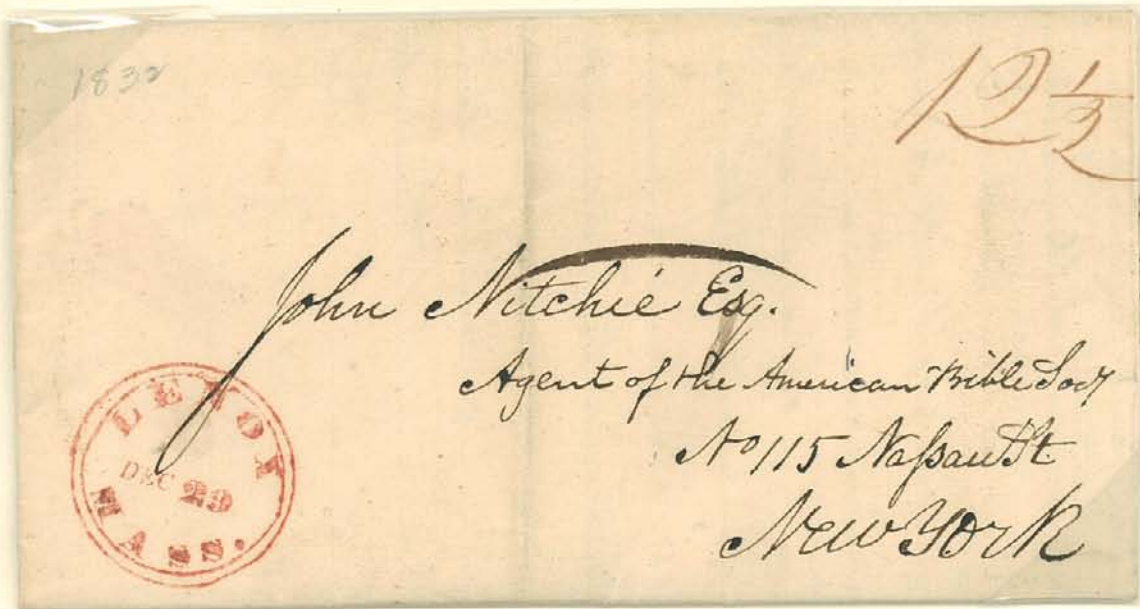 1832
12 1/2
John Nitchie Esq.
Agent of the American Bible Socy
No 115 Naſsau St
New York
LENOX
DEC 29
MASS.